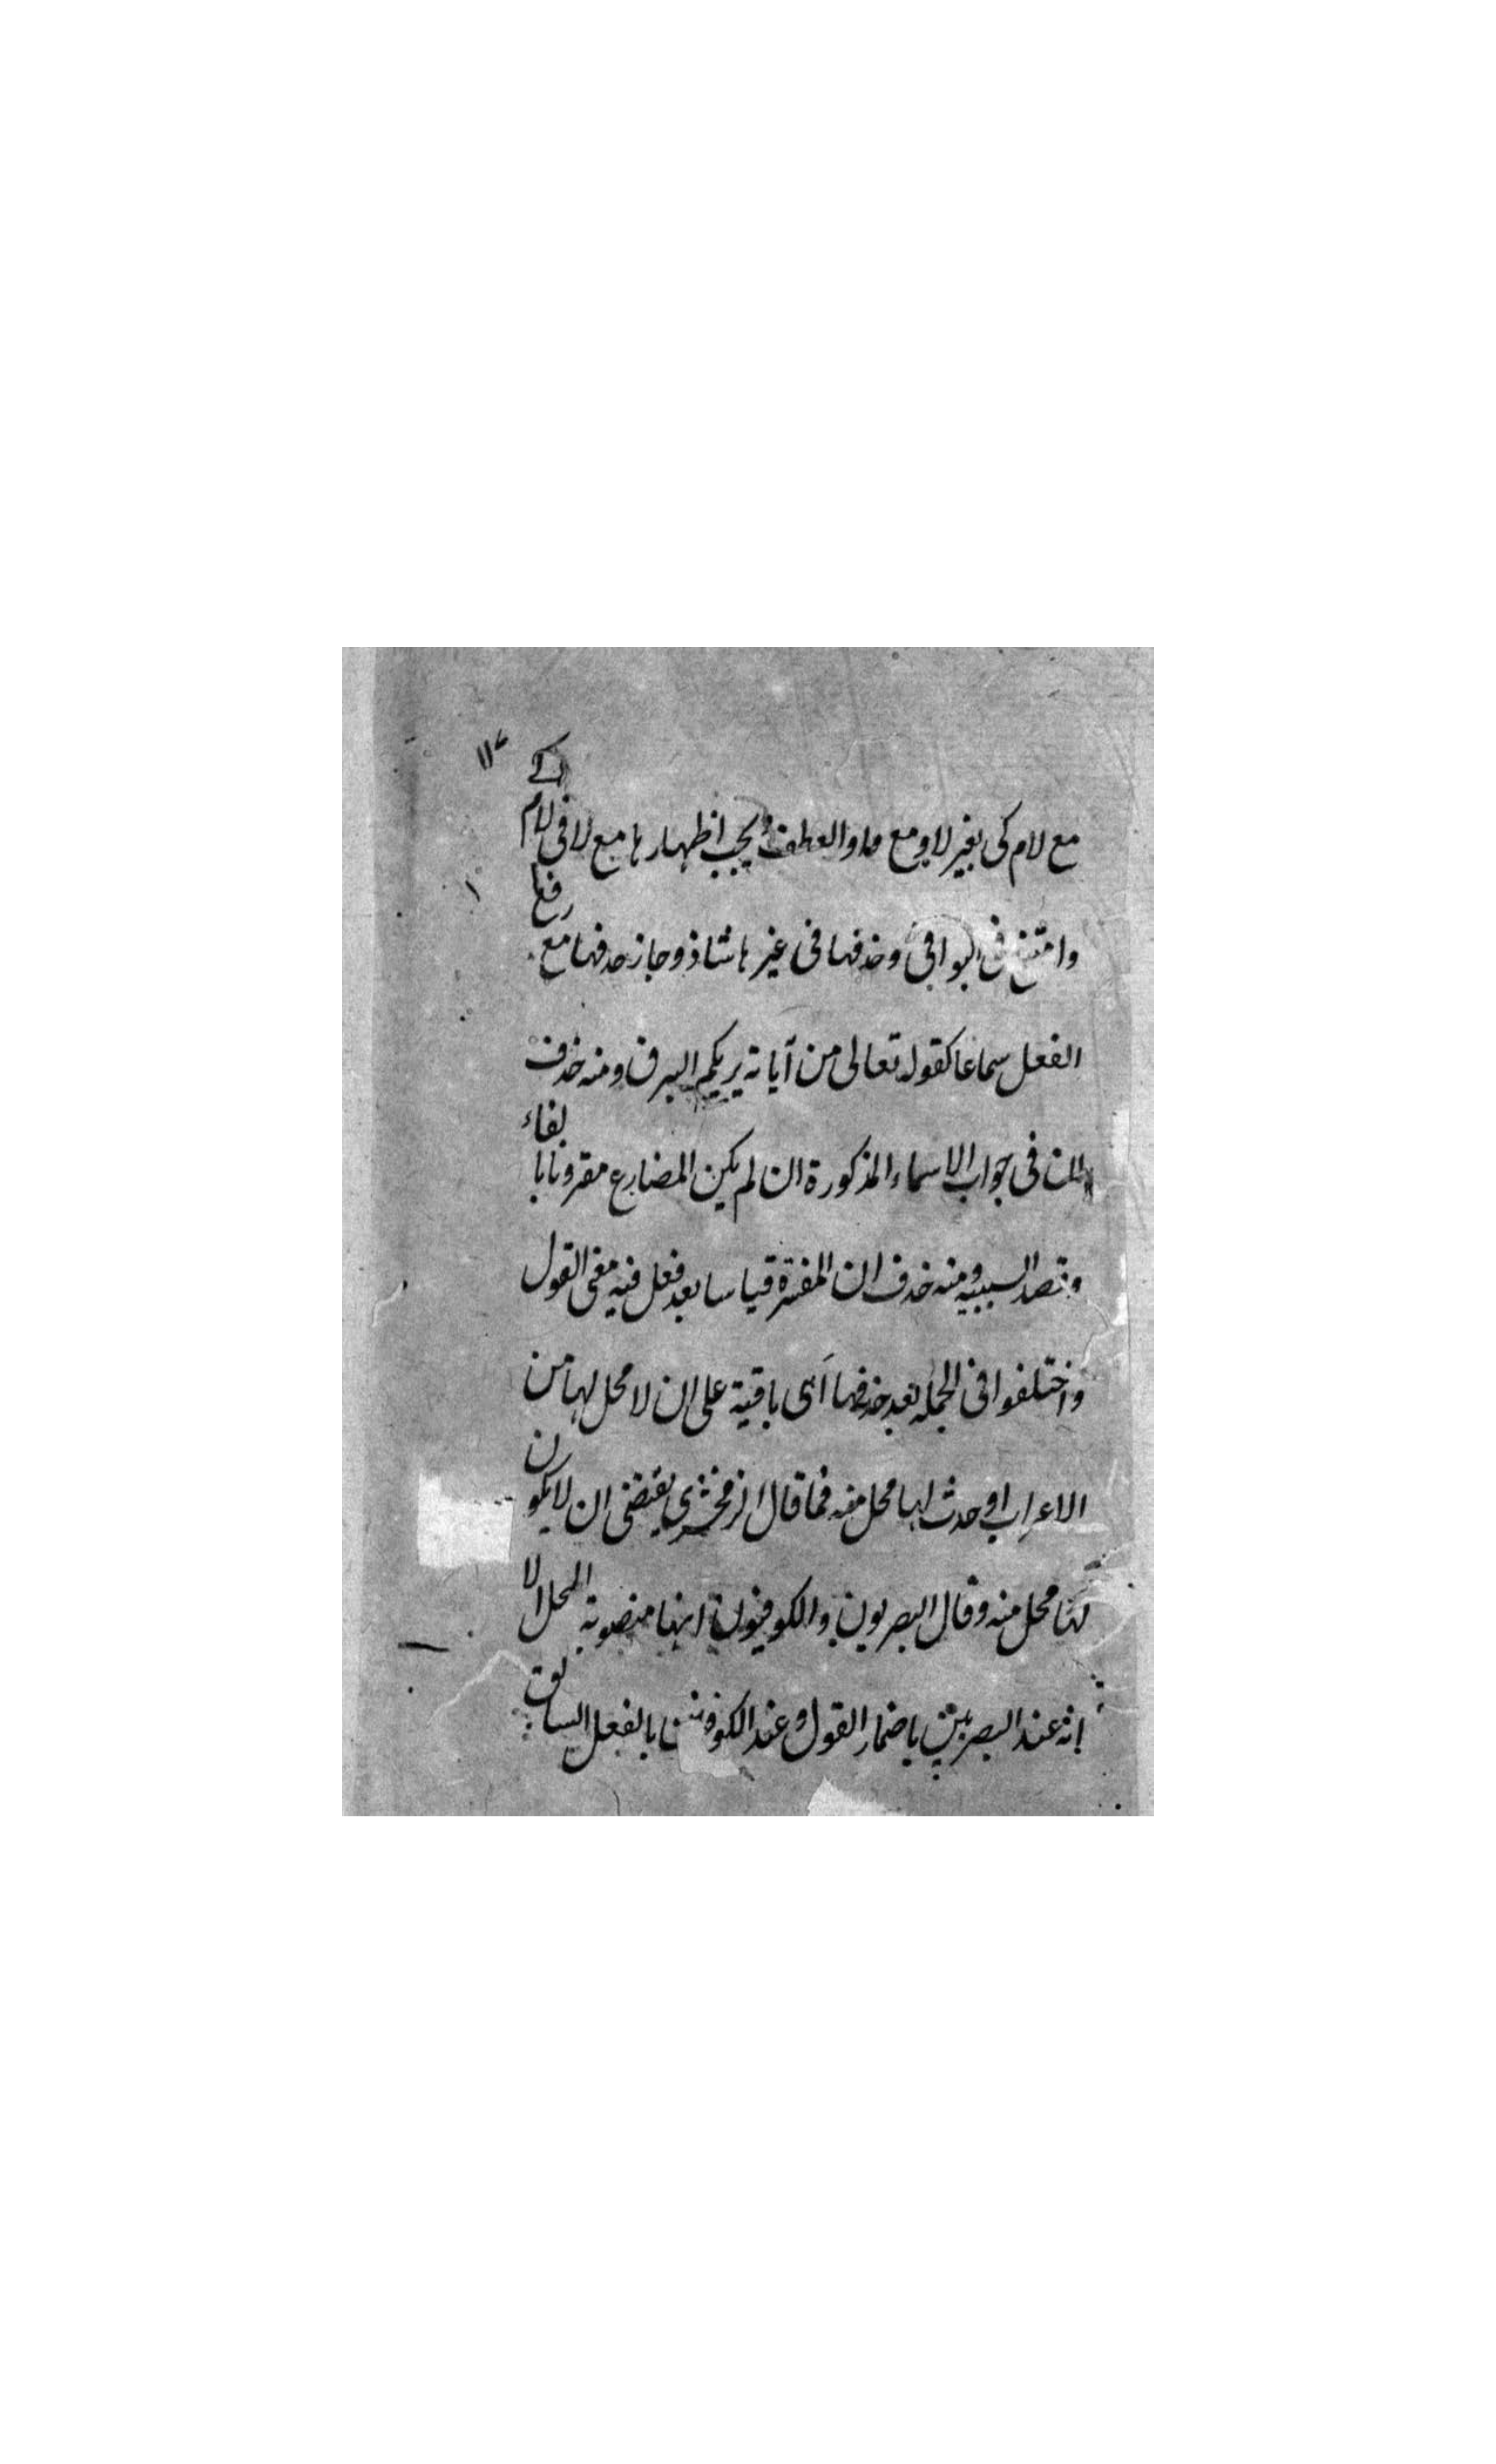 ١١٧
مع لام كى بغير لا ومع واو العطف ويجب اظهارها مع لا فى لام كے
وامتنع فى البواقى وحذفها فى غيرها شاذ وجاز حذفها مع رفع
الفعل سماعا كقوله تعالى من آياته يريكم البرق ومنه حذف
ان فى جواب الاسماء المذكورة ان لم يكن المضارع مقرونا بالفاء
وقصد السببيه ومنه حذف ان المفسرة قياسا بعد فعل فيه معنى القول
واختلفوا فى الجمله بعد حذفها أهى باقية على ان لا محل لها من
الاعراب او حدث لها محل منه فما قال الزمخشرى يقتضى ان لا يكون
لها محل منه وقال البصريون والكوفيون انها منصوبة المحل الا
انه عند البصريين باضمار القول وعند الكوفيين بالفعل السابق